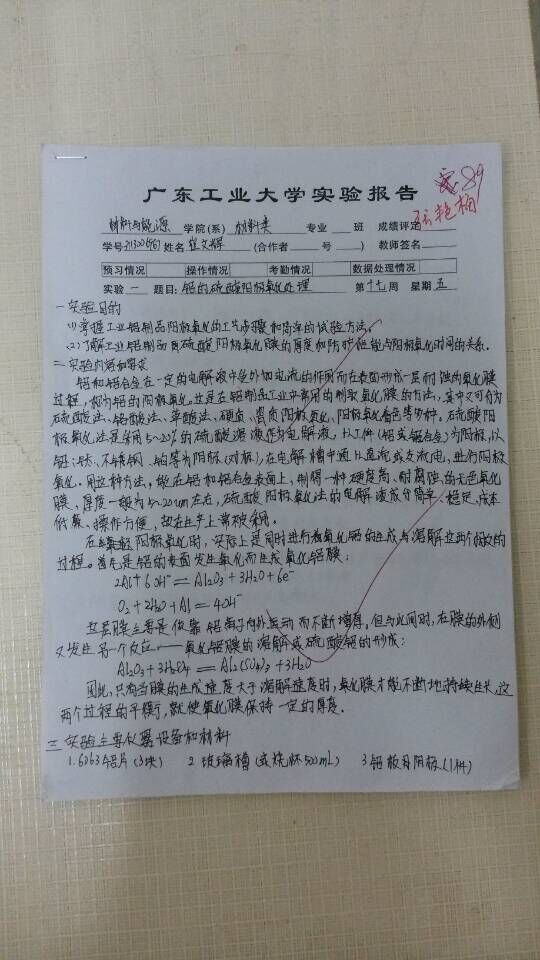 广东工业大学实验报告
89
材料与能源 学院(系) 材料类 专业 班 成绩评定
学号 姓名 崔文辉 (合作者 号 ) 教师签名
预习情况 操作情况 考勤情况 数据处理情况
实验 一 题目: 铝的硫酸阳极氧化处理 第 十七 周 星期 五
一 实验目的
(1) 掌握工业铝制品阳极氧化的工艺步骤和简单的试验方法。
(2) 了解工业铝制品硫酸阳极氧化膜的厚度和防护性能与阳极氧化时间的关系。
二 实验内容和要求
铝和铝合金在一定的电解液中受外加电流的作用而在表面形成一层耐蚀的氧化膜
过程,称为铝的阳极氧化。它是在铝制品工业中常用的制取氧化膜的方法,其中又可分为
硫酸法、铬酸法、草酸法、硬质、瓷质阳极氧化、阳极氧化着色等多种。硫酸阳
极氧化法是采用5~20%的硫酸溶液作为电解液,以工件(铝或铝合金)为阳极,以
铅、钛、不锈钢、铝等为阴极(对极),在电解槽中通以直流或交流电,进行阳极
氧化。用这种方法,能在铝和铝合金表面上,制得一种硬度高、耐腐蚀的无色氧化
膜,厚度一般为5~20um左右,硫酸阳极氧化法的电解液成分简单、稳定,成本
低廉、操作方便,故在生产上常被采用。
在阳极氧化时,实际上是同时进行着氧化铝的生成与溶解这两个相反的
过程。首先是铝的表面发生氧化而生成氧化铝膜:
2Al+6OH⁻=Al₂O₃+3H₂O+6e⁻
O₂+2H₂O+Al=4OH⁻
这层膜主要是依靠铝离子向外运动而不断增厚。但与此同时,在膜的外侧
又发生另一个反应,——氧化铝膜的溶解或硫酸铝的形成:
Al₂O₃+3H₂SO₄=Al₂(SO₄)₃+3H₂O
因此,只有当膜的生成速度大于溶解速度时,氧化膜才能不断地持续生长,这
两个过程的平衡,就使氧化膜保持一定的厚度.
三 实验主要仪器设备和材料
1. 6063铝片(3块) 2. 玻璃槽(或烧杯500mL) 3. 铅板阴极(1件)